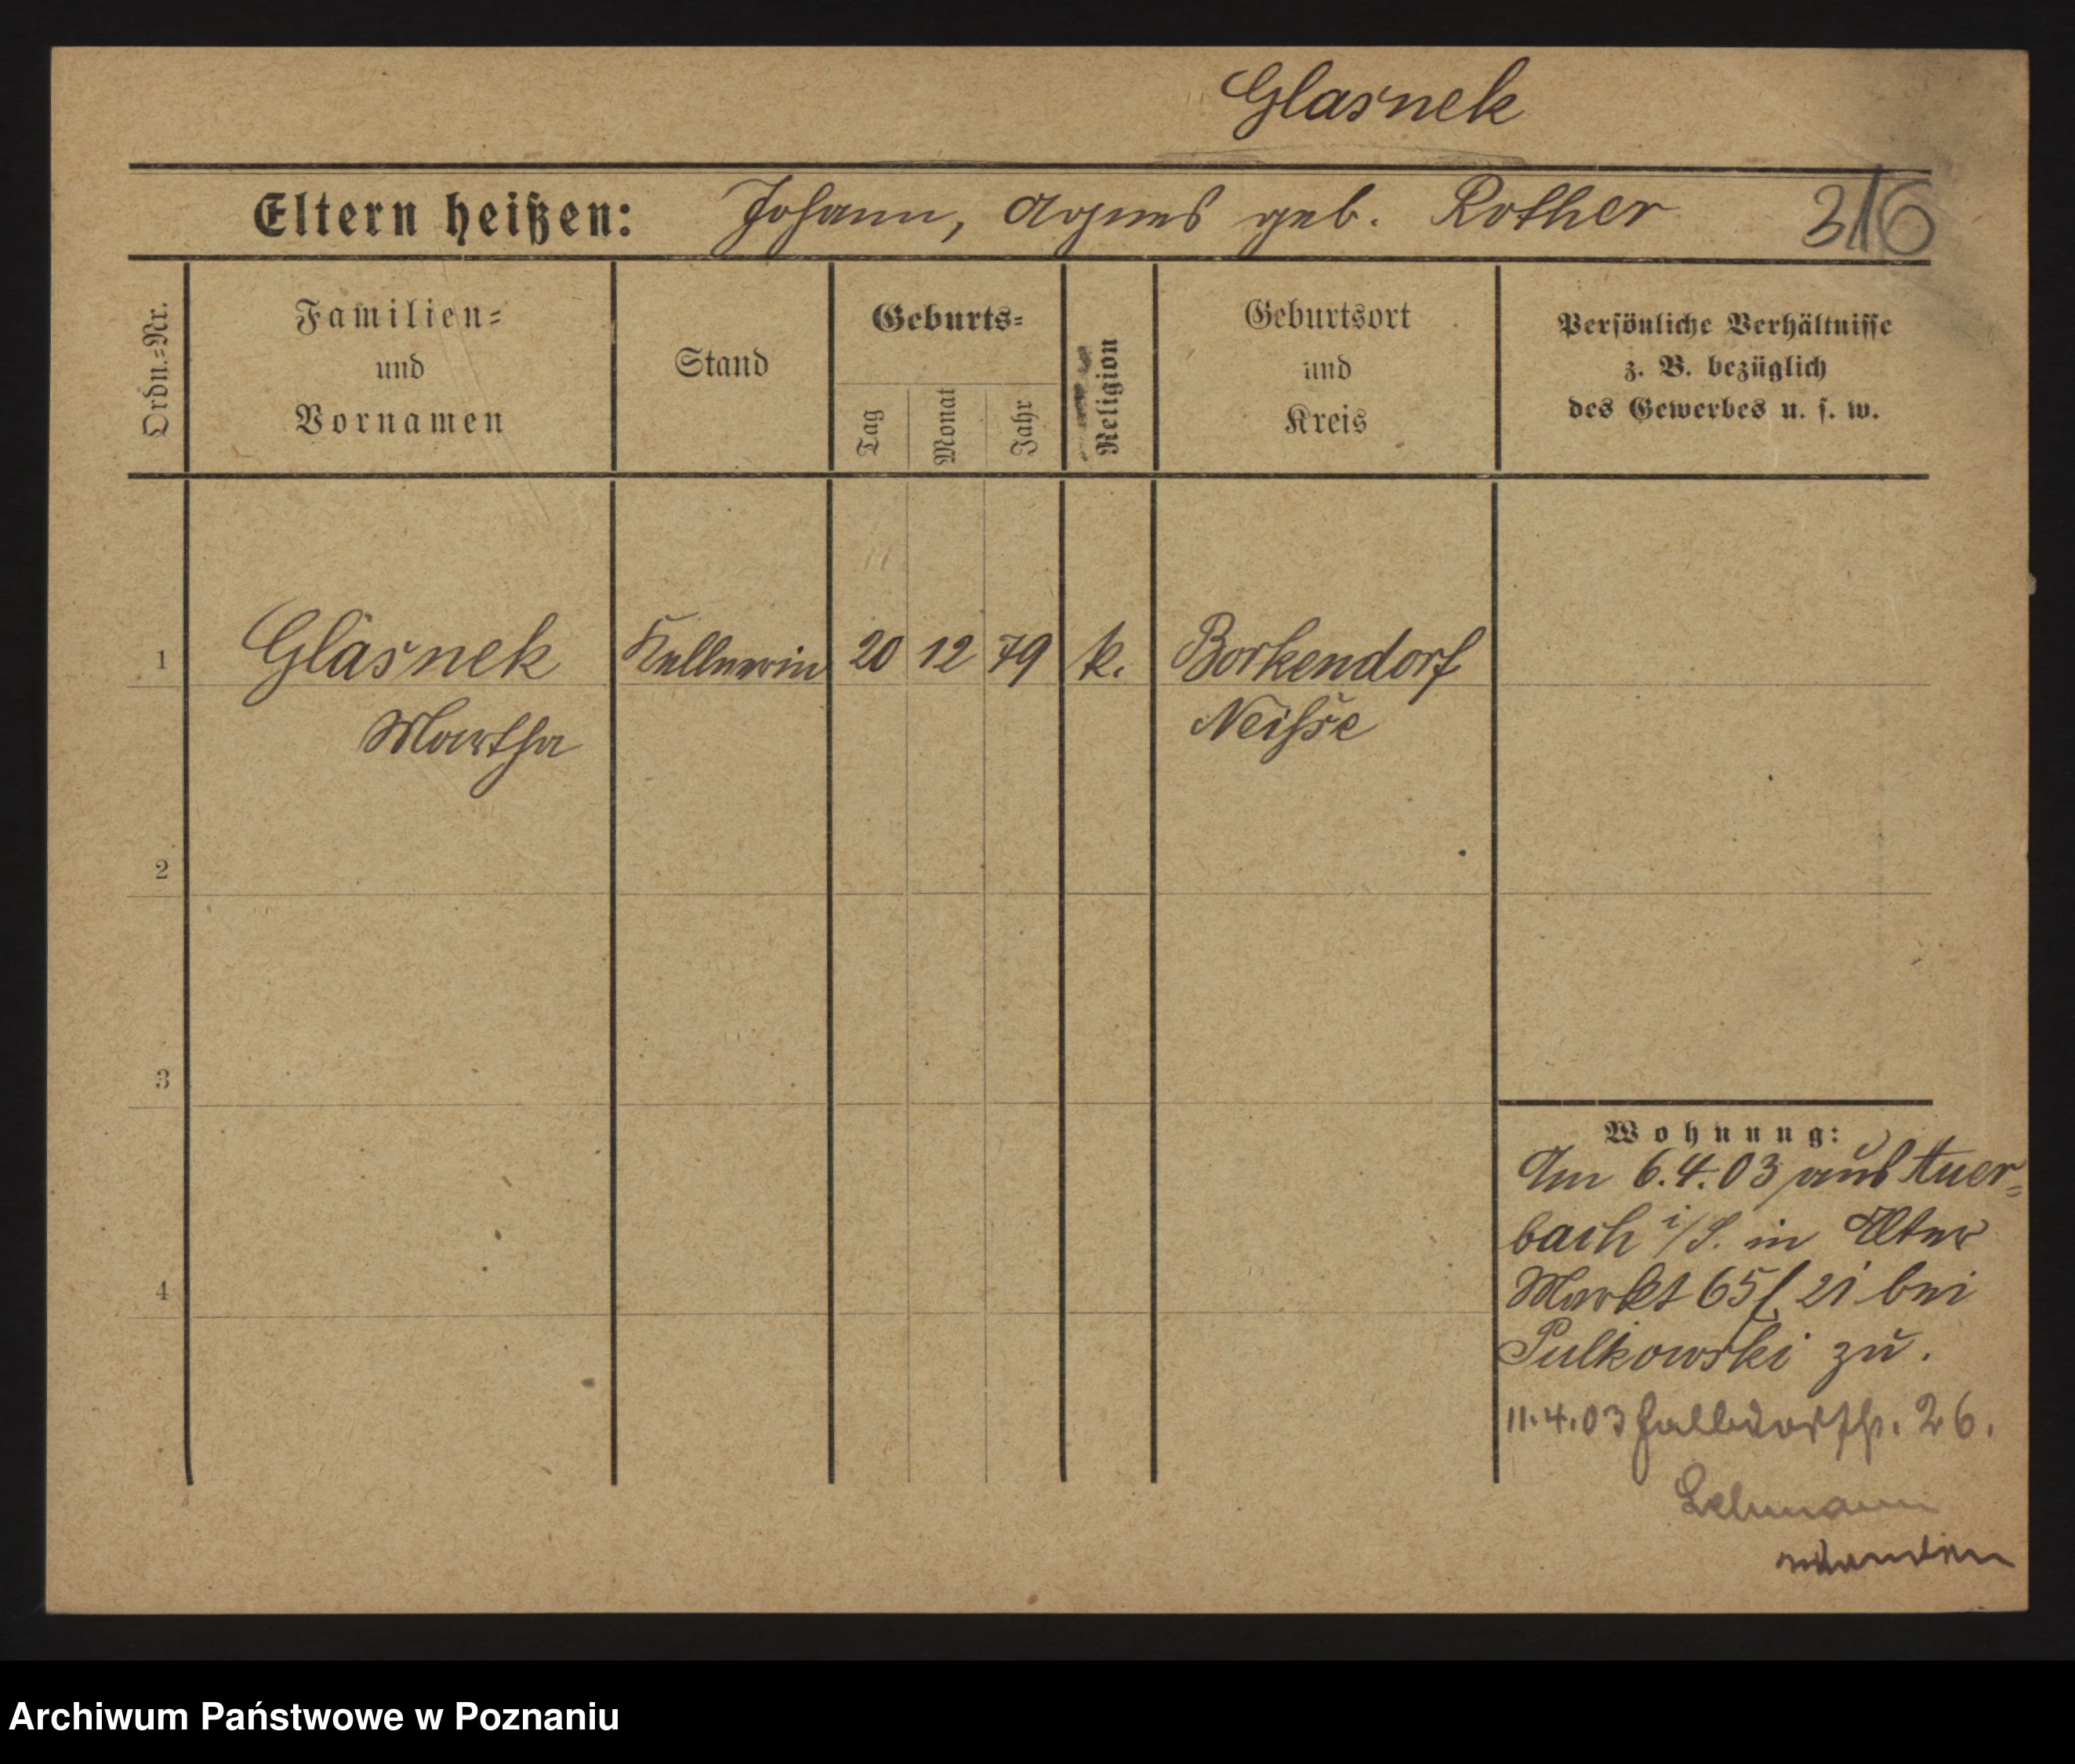 Glasnek
Eltern heißen: Johann, Agnes geb. Rother 316
Ordn.=Nr.
Familien=
und
Vornamen
Stand
Geburts=
Tag
Monat
Jahr
Religion
Geburtsort
und
Kreis
Persönliche Verhältnisse
z. B. bezüglich
des Gewerbes u. s. w.
1 Gläsnek Kellnerin 20 12 79 k. Borkendorf
Martha Neisse
2
3
4
Wohnung:
Am 6.4.03 aus Auer=
bach i/S. in Alter
Markt 65/ 21 bei
Pulkowski zu.
11.4.03 Halbdorfstr. 26.
Lehmann
Archiwum Państwowe w Poznaniu